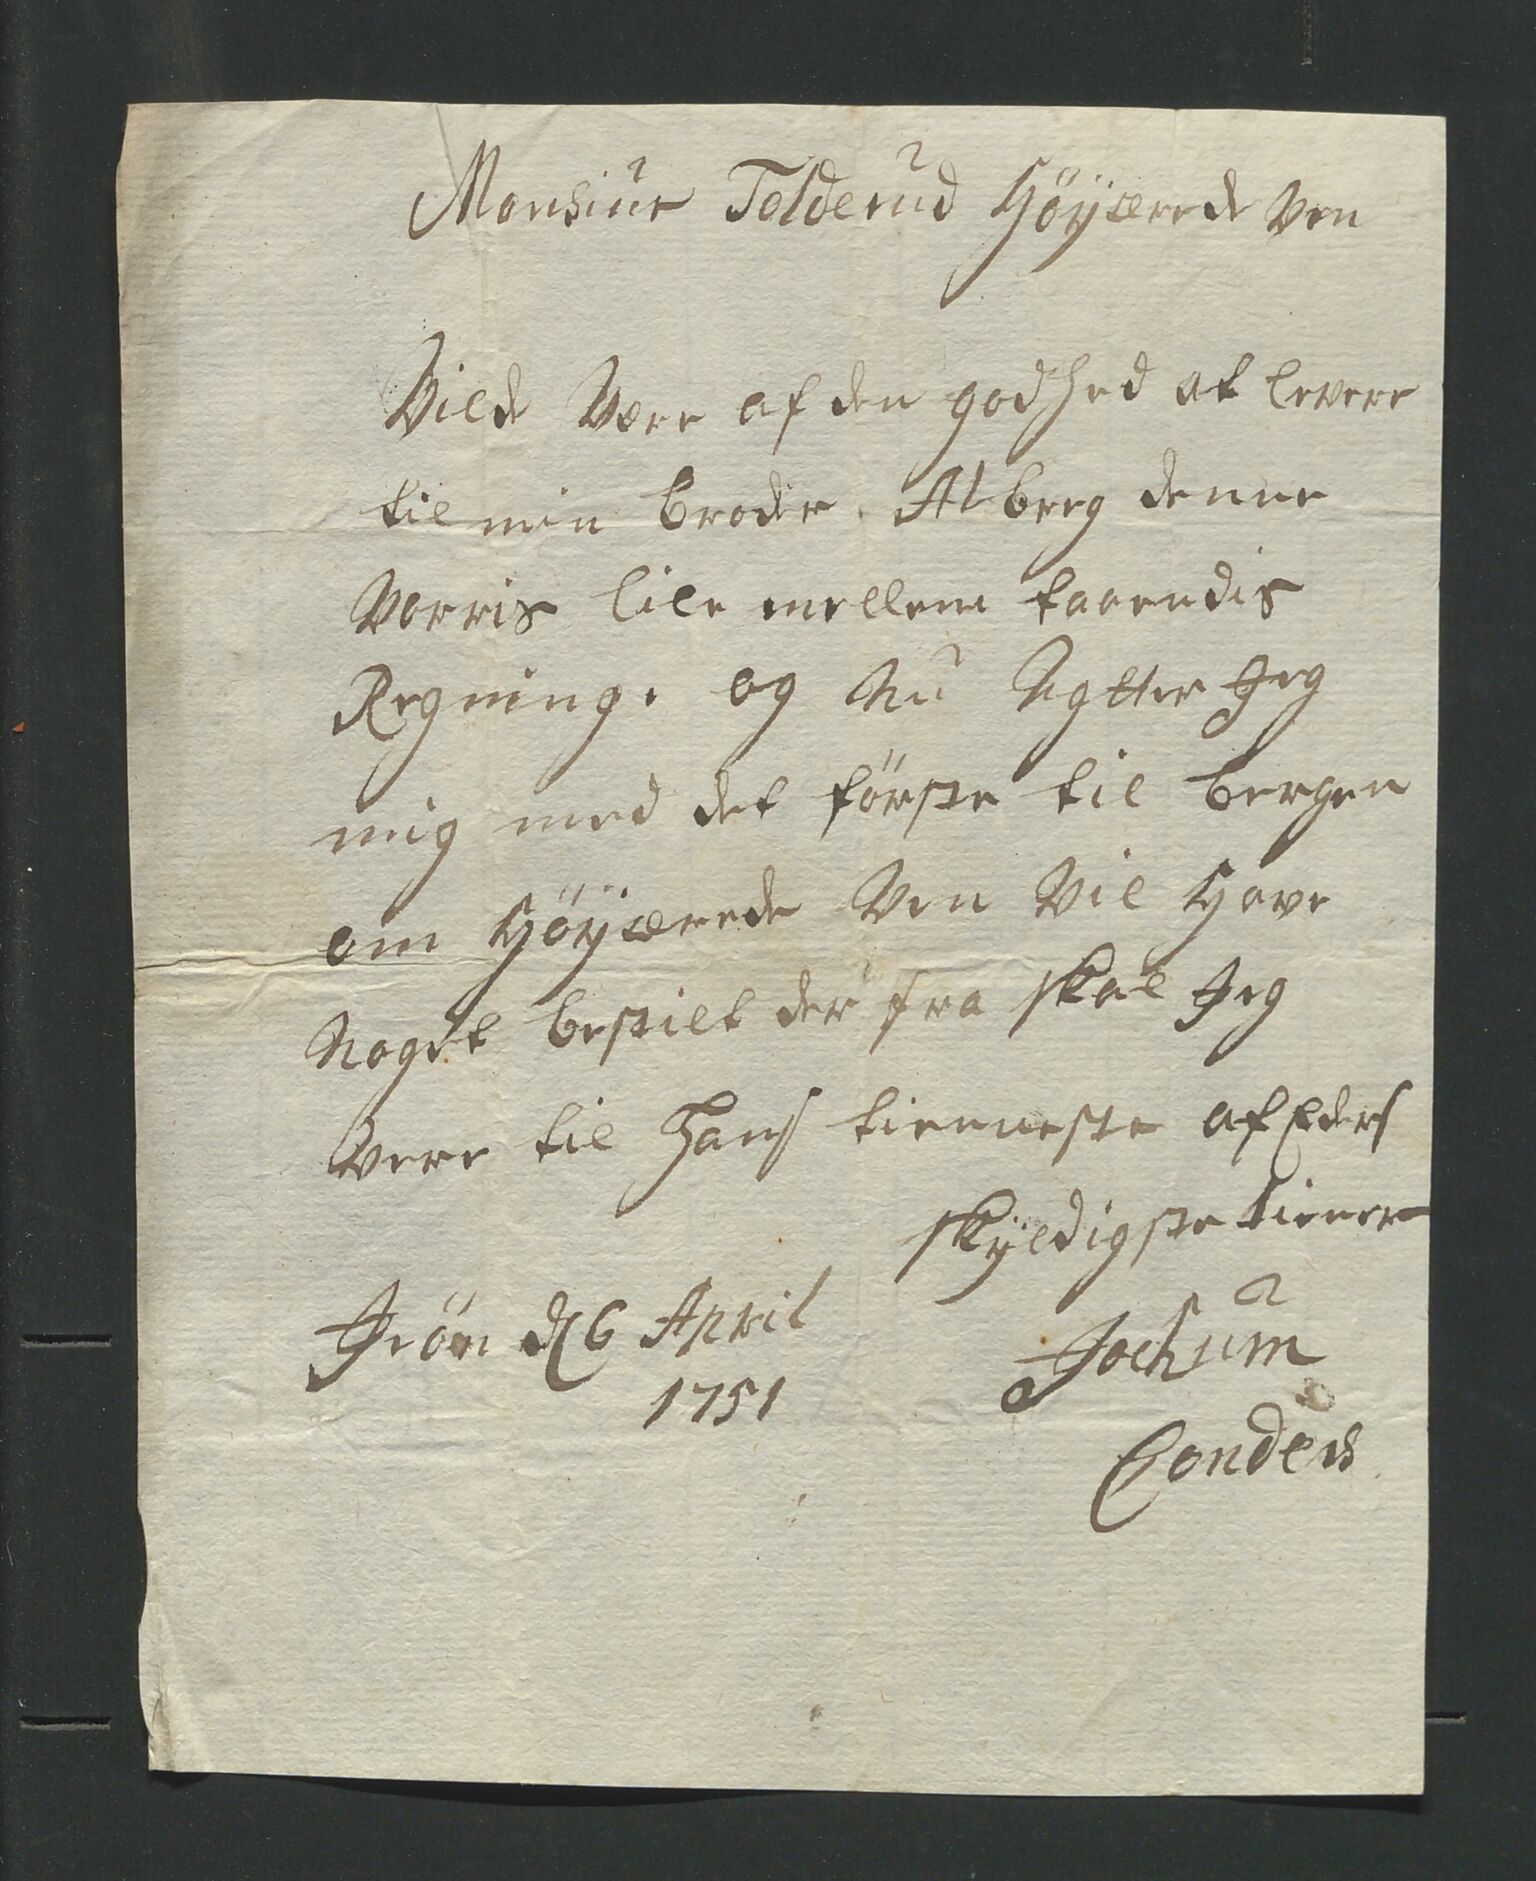 Monsiúr Tolderúd Höÿærede Ven
Vilde Være af den godhed at levere
til min broder Alberg denne
Vorris lile mellem staaendis
Regning. og Nú Agtter Jeg
mig med det förste til bergen
om Höÿærede Ven Vil Have
Noget bestilt der fra skal Jeg
Vere til Hans tienneste af Eders
skÿldigste tiener
d 6 April
1751
Jochúm